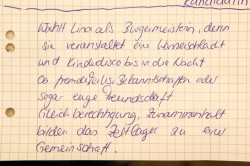 Kandidatin
Wählt Lina als Bürgermeisterin, denn
sie veranstaltet eine Wasserschlacht
und Kinderdisco bis in die Nacht
Ob Bekanntschaften oder
sogar enge Freundschaft
Gleichberechtigung, Zusammenhalt
bilden das Zeltlager zu einer
Gemeinschaft.